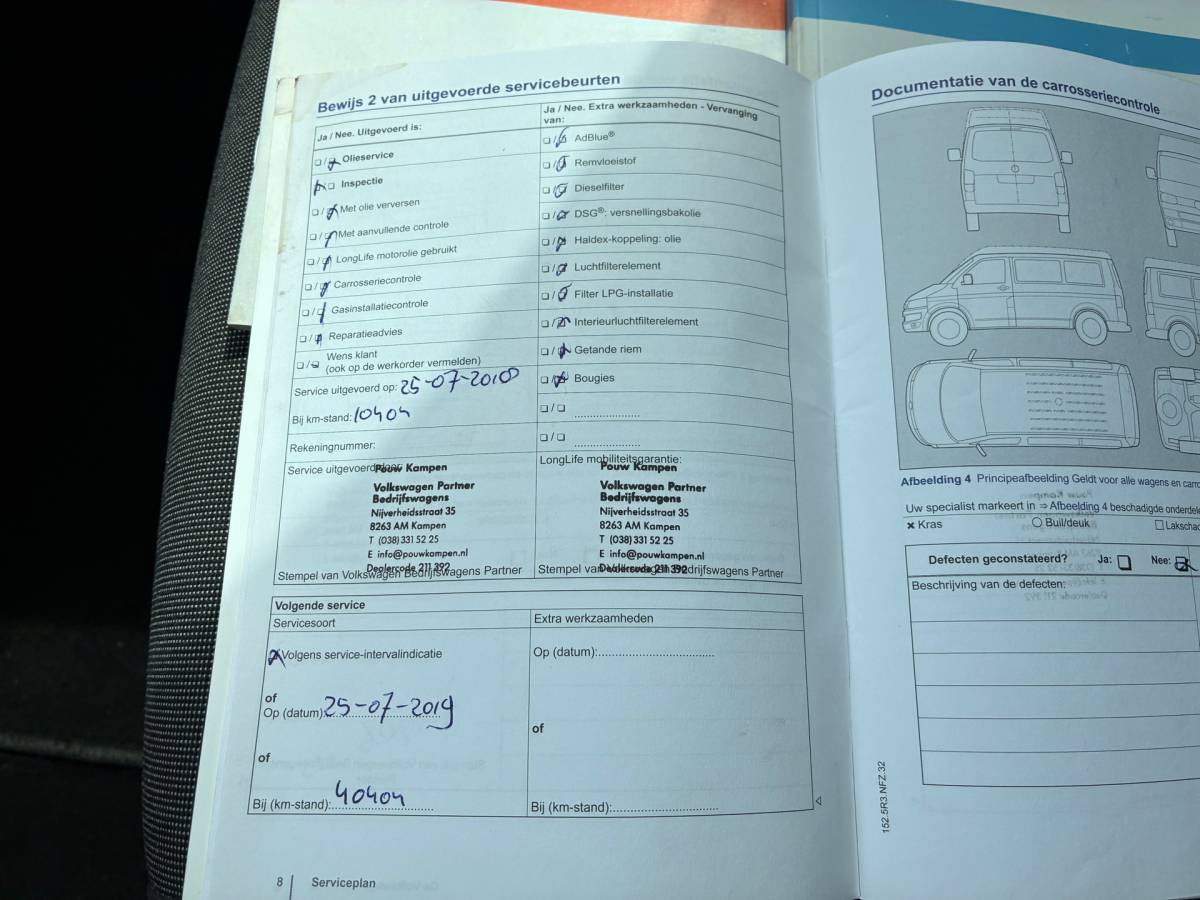 Bewijs 2 van uitgevoerde servicebeurten
Ja / Nee. Uitgevoerd is:
Olieservice
Inspectie
Met olie verversen
Met aanvullende controle
LongLife motorolie gebruikt
Carrosseriecontrole
Gasinstallatiecontrole
Reparatieadvies
Wens klant
(ook op de werkorder vermelden)
Service uitgevoerd op: 25-07-2018
Bij km-stand: 10404
Rekeningnummer:
Service uitgevoerd door:
Pouw Kampen
Volkswagen Partner
Bedrijfswagens
Nijverheidsstraat 35
8263 AM Kampen
T (038) 331 52 25
E info@pouwkampen.nl
Dealercode 211 392
Stempel van Volkswagen Bedrijfswagens Partner
Ja / Nee. Extra werkzaamheden - Vervanging
van:
AdBlue®
Remvloeistof
Dieselfilter
DSG®: versnellingsbakolie
Haldex-koppeling: olie
Luchtfilterelement
Filter LPG-installatie
Interieurluchtfilterelement
Getande riem
Bougies
LongLife mobiliteitsgarantie:
Pouw Kampen
Volkswagen Partner
Bedrijfswagens
Nijverheidsstraat 35
8263 AM Kampen
T (038) 331 52 25
E info@pouwkampen.nl
Dealercode 211 392
Stempel van Volkswagen Bedrijfswagens Partner
Volgende service
Servicesoort
Volgens service-intervalindicatie
of
Op (datum): 25-07-2019
of
Bij (km-stand): 40404
Extra werkzaamheden
Op (datum):
of
Bij (km-stand):
8 Serviceplan
Documentatie van de carrosseriecontrole
Afbeelding 4 Principeafbeelding Geldt voor alle wagens en
Uw specialist markeert in ⇒ Afbeelding 4 beschadigde
× Kras
Buil/deuk
Defecten geconstateerd? Ja: Nee:
Beschrijving van de defecten:
152.5R3.NFZ.32